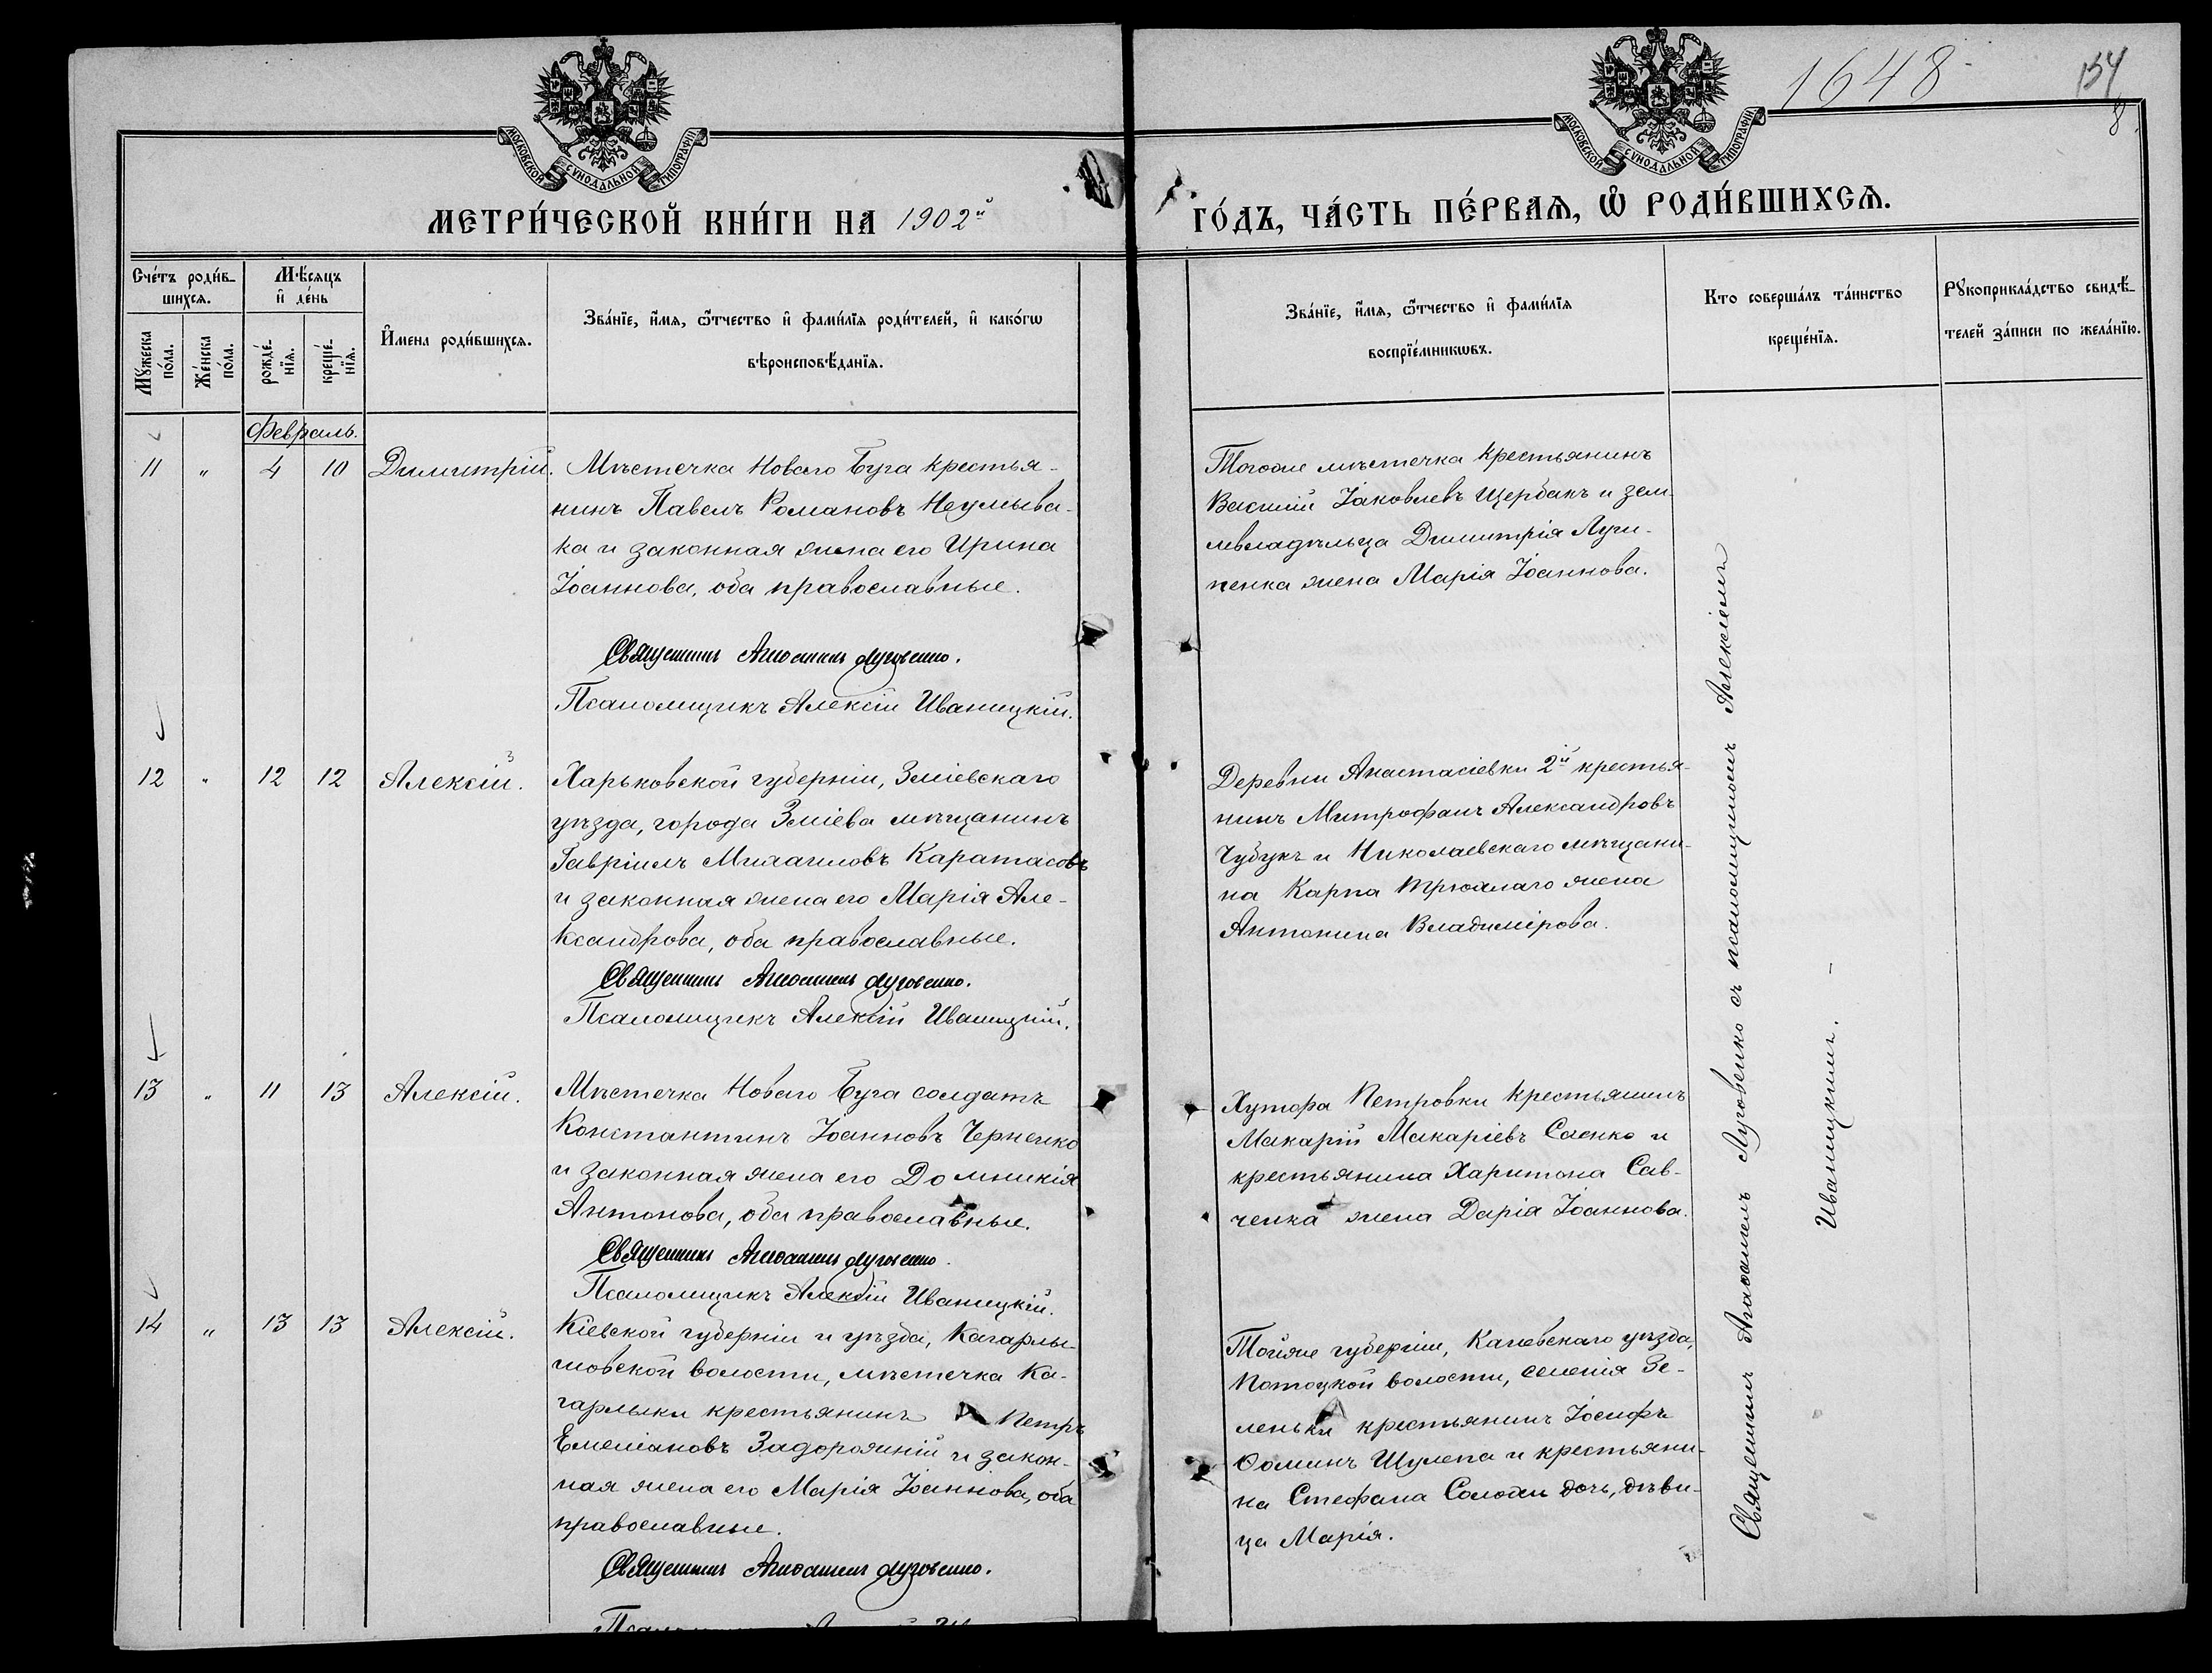 1648
134
8
МОСКОВСКОЙ СѴНОДАЛЬНОЙ ТИПОГРАФІИ
МОСКОВСКОЙ СѴНОДАЛЬНОЙ ТИПОГРАФІИ
МЕТРИ́ЧЕСКОЙ КНИ́ГИ НА 1902й
ГО́ДЪ, ЧА́СТЬ ПЕ́РВАѦ, Ѡ҆ РОДИ́ВШИХСѦ.
Сче́тъ роди́в-
шихсѧ.
Мѣ́сѧцъ
и҆ де́нь
Мꙋ́жеска
по́ла.
Же́нска
по́ла.
рожде́-
нїѧ.
креще́-
нїѧ.
И҆мена роди́вшихсѧ.
Зва́нїе, и҆́мѧ, ѻ҆́тчество и҆ фами́лїѧ роди́телей, и҆ како́гѡ
вѣроисповѣ́данїѧ.
Зва́нїе, и҆́мѧ, ѻ҆́тчество и҆ фами́лїѧ
воспрїе́мникѡвъ.
Кто соверша́лъ та́инство
креще́нїѧ.
Рꙋкоприкла́дство свидѣ́-
телей за́писи по жела́нїю.
Февраль.
11 " 4 10 Димитрій. Мѣстечка Новаго Буга крестья-
нинъ Павелъ Романовъ Неумыва-
ка и законная жена его Ирина
Іоаннова, оба православные.
Священникъ Агаѳангелъ Луговенко.
Псаломщикъ Алексій Иваницкій.
Тогоже мѣстечка крестьянинъ
Василій Іаковлевъ Щербакъ и зем-
левладѣльца Димитрія Лучи-
пенка жена Марія Іоаннова.
12 " 12 12 Алексій. Харьковской губерніи, Зміевскаго
уѣзда, города Зміева мѣщанинъ
Гавріилъ Михаиловъ Каратасовъ
и законная жена его Марія Але-
ксандрова, оба православные.
Священникъ Агаѳангелъ Луговенко.
Псаломщикъ Алексій Иваницкій.
Деревни Анастасіевки 2й крестья-
нинъ Митрофанъ Александровъ
Чубукъ и Николаевскаго мѣщани-
на Карпа жена
Антонина Владимірова.
13 " 11 13 Алексій. Мѣстечка Новаго Буга солдатъ
Константинъ Іоанновъ Черненко
и законная жена его Домникія
Антонова, оба православные.
Священникъ Агаѳангелъ Луговенко.
Псаломщикъ Алексій Иваницкій.
Хутора Петровки крестьянинъ
Макарій Макаріевъ Саенко и
крестьянина Харитона Сав-
ченка жена Дарія Іоаннова.
14 " 13 13 Алексій. Кіевской губерніи и уѣзда, Кагарлы-
ковской волости, мѣстечка Ка-
гарлыка крестьянинъ Петръ
Емеліановъ Задорожній и закон-
ная жена его Марія Іоаннова, оба
православные.
Священникъ Агаѳангелъ Луговенко.
Тойже губерніи, Каневскаго уѣзда,
Потоцкой волости, селенія Зе-
леньки крестьянинъ Іосифъ
Ѳоминъ Шулепа и крестьяни-
на Стефана дочь, дѣви-
ца Марія.
Священникъ Агаѳангелъ Луговенко съ псаломщикомъ Алексіемъ
Иваницкимъ.